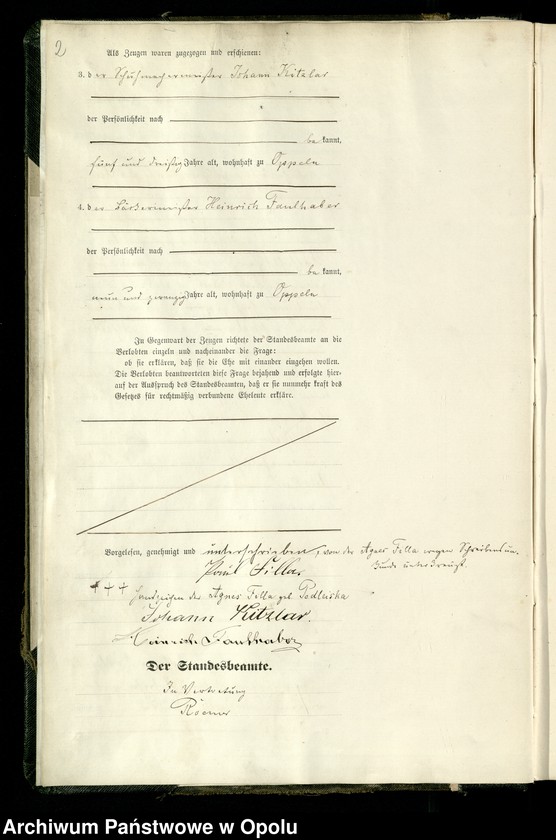 2
Als Zeugen waren zugezogen und erschienen:
3. der Schuhmachermeister Johann Kitzlar
der Persönlichkeit nach
be kannt,
fünf und dreißig Jahre alt, wohnhaft zu Oppeln
4. der Bäckermeister Heinrich Faulhaber
der Persönlichkeit nach
be kannt,
neun und zwanzig Jahre alt, wohnhaft zu Oppeln
In Gegenwart der Zeugen richtete der Standesbeamte an die
Verlobten einzeln und nacheinander die Frage:
ob sie erklären, daß sie die Ehe mit einander eingehen wollen.
Die Verlobten beantworteten diese Frage bejahend und erfolgte hier-
auf der Ausspruch des Standesbeamten, daß er sie nunmehr kraft des
Gesetzes für rechtmäßig verbundene Eheleute erkläre.
Vorgelesen, genehmigt und unterschrieben, von der Agnes Filla wegen Schreibensun-
kunde unterkreuzt.
Paul Filla
+++ Handzeichen der Agnes Filla geb. Podleska
Johann Kitzlar.
Heinrich Faulhaber
Der Standesbeamte.
In Vertretung
Archiwum Państwowe w Opolu